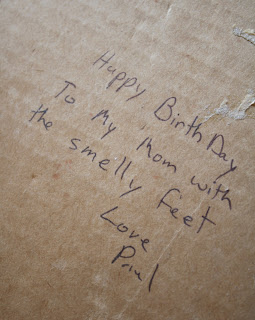 Happy BirthDay
To my mom with
the smelly feet
Love
Paul